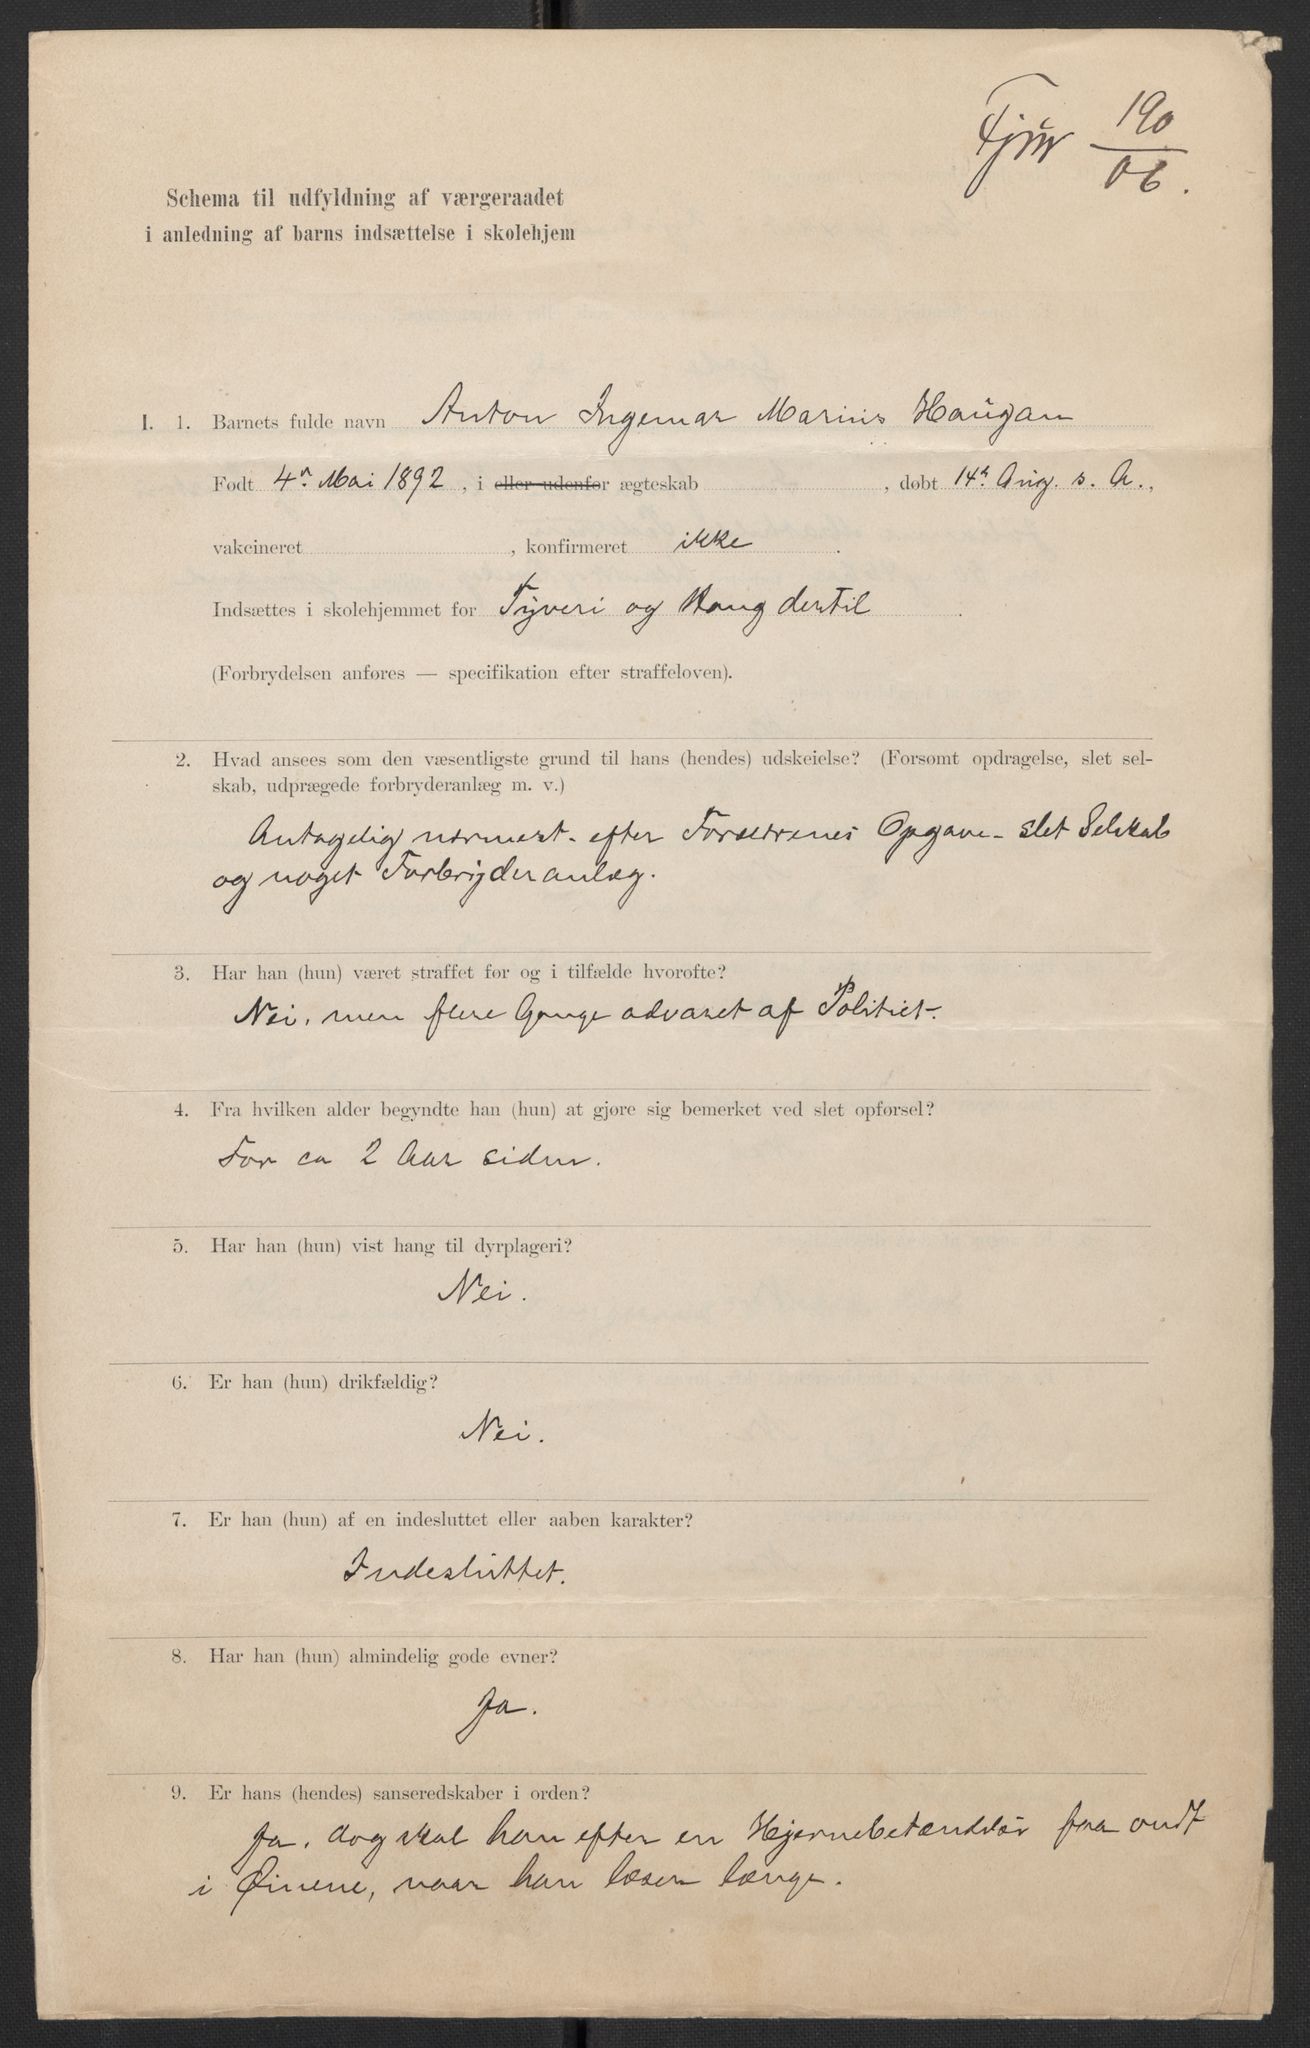 190
06.
Schema til udfyldning af værgeraadet
i anledning af barns indsættelse i skolehjem
I. 1. Barnets fulde navn Anton Ingemar Marius Haugan
Født 4de Mai 1892, i eller udenfor ægteskab , døbt 14de Aug. s. A.,
vakcineret , konfirmeret ikke .
Indsættes i skolehjemmet for Tyveri og Hang dertil .
(Forbrydelsen anføres — specifikation efter straffeloven).
2. Hvad ansees som den væsentligste grund til hans (hendes) udskeielse? (Forsømt opdragelse, slet sel-
skab, udprægede forbryderanlæg m. v.)
Antagelig nærmest - efter Forældrenes Opgave - slet Selskab
og noget Forbryderanlæg.
3. Har han (hun) været straffet før og i tilfælde hvorofte?
Nei, men flere Gange advaret af Politiet.
4. Fra hvilken alder begyndte han (hun) at gjøre sig bemerket ved slet opførsel?
For ca 2 Aar siden.
5. Har han (hun) vist hang til dyrplageri?
Nei.
6. Er han (hun) drikfældig?
Nei.
7. Er han (hun) af en indesluttet eller aaben karakter?
Indesluttet.
8. Har han (hun) almindelig gode evner?
Ja.
9. Er hans (hendes) sanseredskaber i orden?
Ja, dog skal han efter en Hjernebetændelse faa ondt
i Øinene, naar han læser længe.